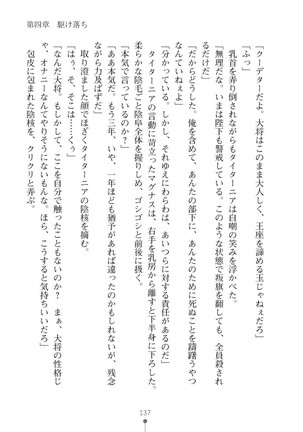 第四章　駆け落ち
「クーデターだよ。大将はこのまま大人しく、王座を諦める玉じゃねぇだろ」
「ふっ」
乳首を弄り倒されながらもタイターニアは自嘲の笑みを浮かべる。
「無理だな。いまは陛下も警戒している。このような状態で叛旗を翻しても、全員殺され
るだけだ」
「だからどうした。俺を含めて、あんたの部下に、あんたのために死ぬことを躊躇うやつ
なんていねぇよ」
「分かっている。しかし、それゆえにわらわは、あいつらに対する責任があるのだ」
タイターニアの言動に苛立ったマグナスは、右手を乳房から離すと下半身に下ろした。
柔らかな陰毛ごと陰阜全体を握りしめ、ゴシゴシと前後に扱く。
「本気で言っているのか？」
「ああ本気だ。もう三年、いや、一年ほども猶予があれば違ったのかもしれぬが、残念
ながら力及ばずだ」
取り澄ました顔でほざくタイターニアの陰核を摘まむ。
「あ、そ、そこは……くっ」
「なんだ大将。もしかして、ここを自分で触ったこともないのか？　まぁ、大将の性格じ
ゃ、オナニーなんてやりそうにないもんな。ほら、こうすると気持ちいいだろ」
包皮に包まれた陰核を、クリクリと弄ぶ。
137